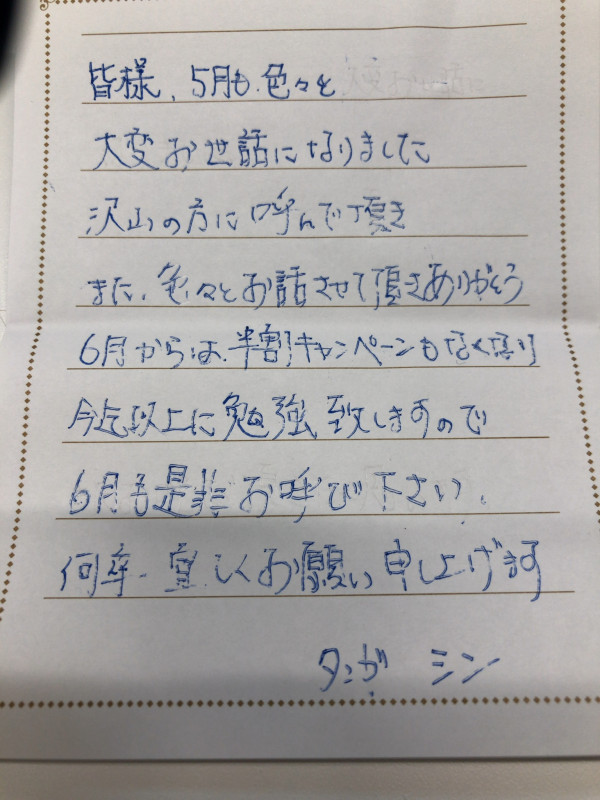 皆様、5月も色々と
大変お世話になりました
沢山の方に呼んで頂き
また、色々とお話させて頂きありがとう
6月からは、半割キャンペーンもなくなり
今迄以上に勉強致しますので
6月も是非お呼び下さい、
何卒宜しくお願い申し上げます
シン